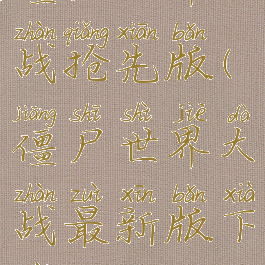 zhàn qiǎng xiān bǎn
战抢先版(
jiāng shī shì jiè dà
僵尸世界大
zhàn zuì xīn bǎn xià
战最新版下